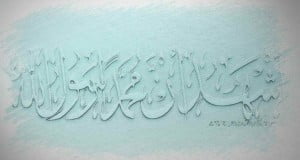 شهد ان محمد رسول الله